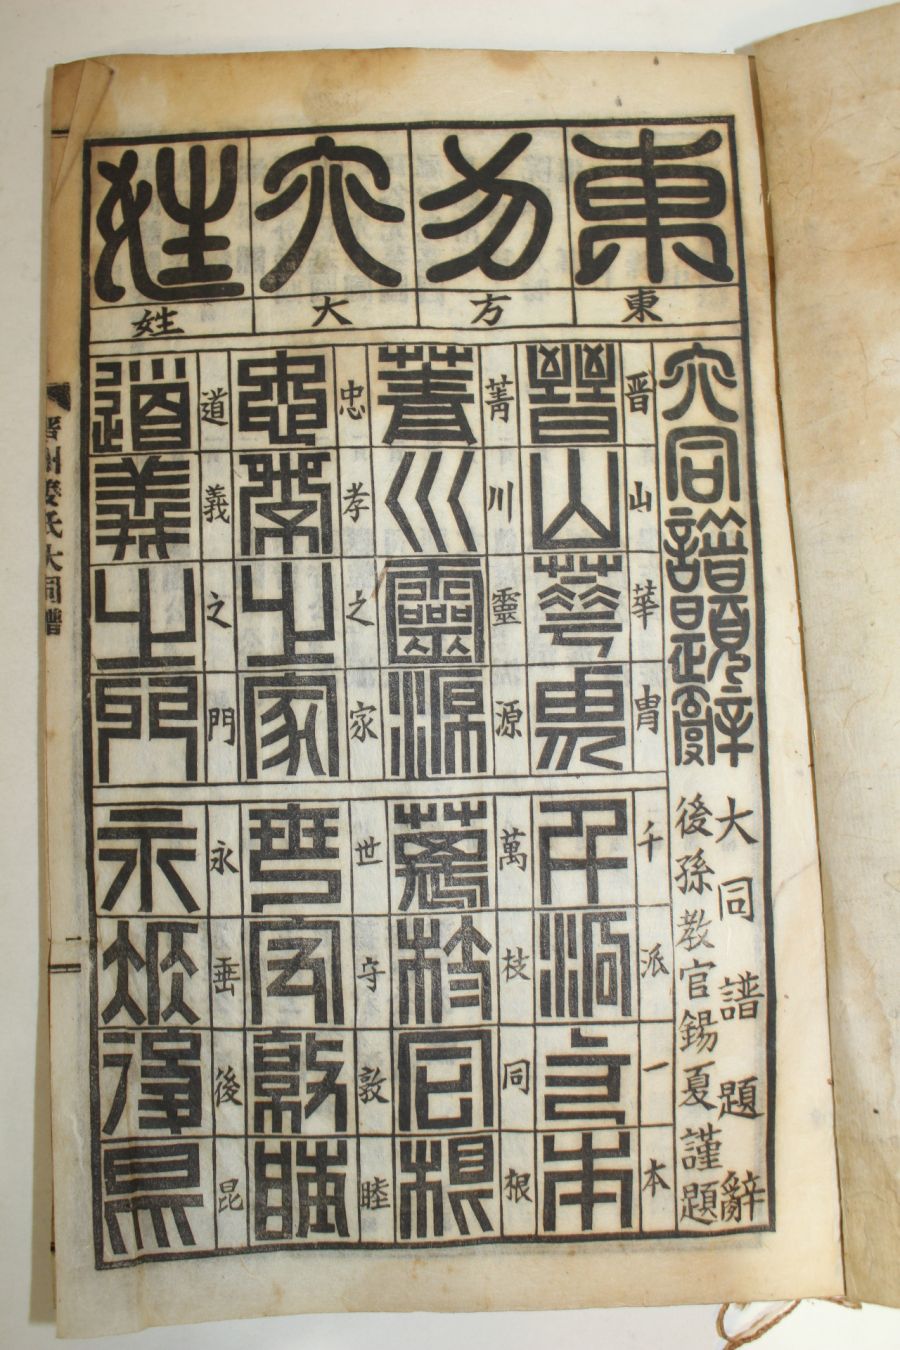 東方大姓
東方大姓
大同譜題辭
大同譜題辭
後孫教官錫夏謹題
晋山華胄
晋山華胄
菁川靈源
菁川靈源
忠孝之家
忠孝之家
道義之門
道義之門
千派一本
千派一本
萬枝同根
萬枝同根
世守敦睦
世守敦睦
永垂後昆
永垂後昆
晋州姜氏大同譜